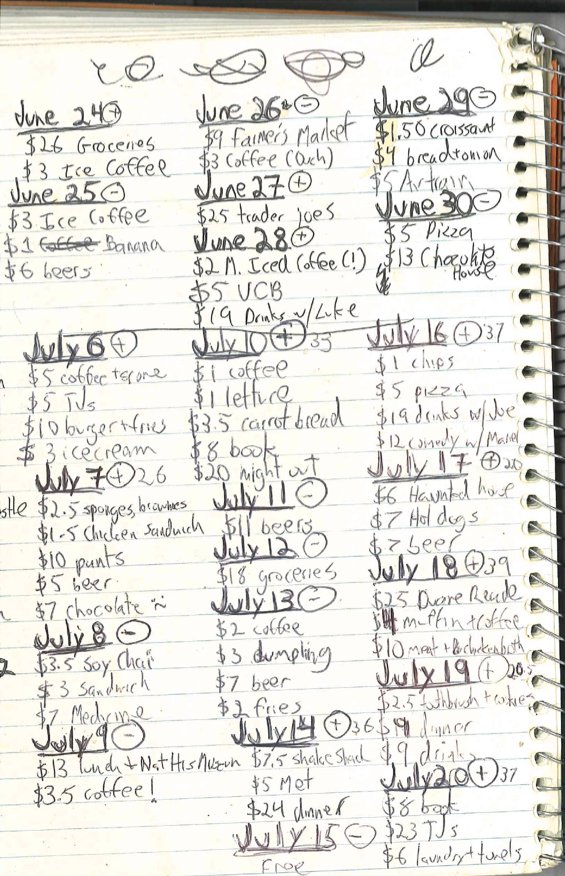 June 24 +
$26 Groceries
$3 Ice Coffee
June 25 -
$3 Ice Coffee
$1 Coffee Banana
$6 beers
June 26 -
$9 Farmer's Market
$3 Coffee (Ouch)
June 27 +
$25 trader joes
June 28 +
$2 M. Iced Coffee (!)
$5 UCB
$19 Drinks w/Luke
June 29 -
$1.50 Croissant
$4 bread+onion
$5 Airtrain
June 30 -
$5 Pizza
$13 Chocolate
House
July 6 +
$5 coffee + scone
$5 TJs
$10 burger+fries
$3 icecream
July 7 + 26
$2.5 sponges, brownies
$1.5 Chicken Sandwich
$10 pants
$5 beer
$7 chocolate
July 8 -
$3.5 Soy Chai
$3 Sandwich
$7 Medicine
July 9 -
$13 lunch + Nat His Museum
$3.5 coffee!
July 10 + 33
$1 coffee
$1 lettuce
$3.5 carrot bread
$8 book
$20 night out
July 11 -
$11 beers
July 12 -
$18 groceries
July 13 -
$2 coffee
$3 dumpling
$7 beer
$2 fries
July 14 + 36
$7.5 shake shack
$5 Met
$24 dinner
July 15 -
Free
July 16 + 37
$1 chips
$5 pizza
$19 drinks w/Joe
$12 comedy w/
July 17 + 20
$6 Haunted house
$7 Hot dogs
$7 beer
July 18 + 39
$25 Duane Reade
$4 muffin + coffee
$10 meat +
July 19 + 20.5
$2.5 toothbrush + cookies
$9 dinner
$9 drinks
July 20 + 37
$8 book
$23 TJs
$6 laundry + towels